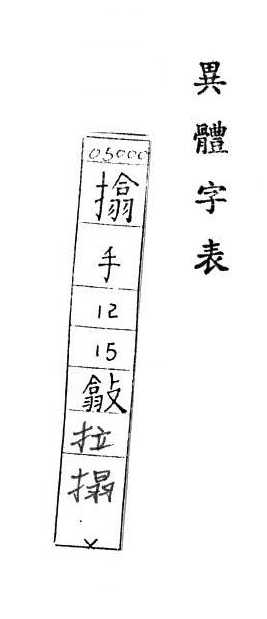 異體字表
05000
㩉
手
12
15
拉
搨
×